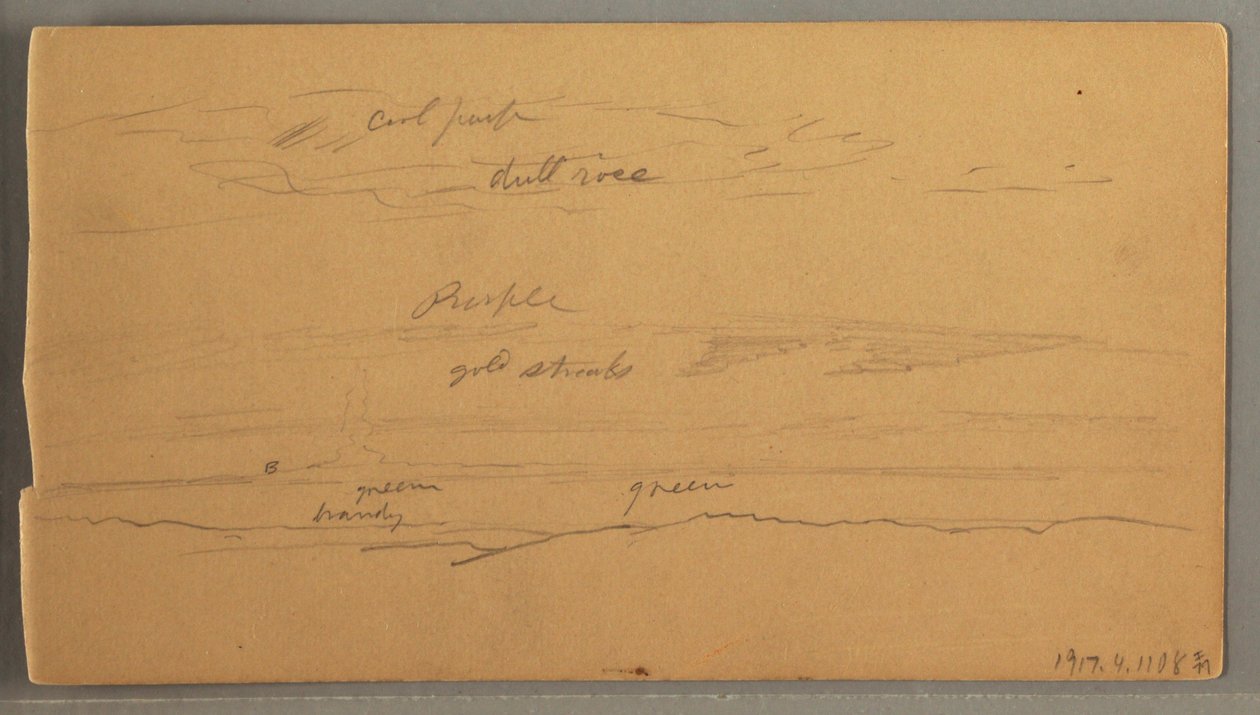 cool purp
dull rose
Purple
gold streaks
B
green
green
brandy
1917.4.1108